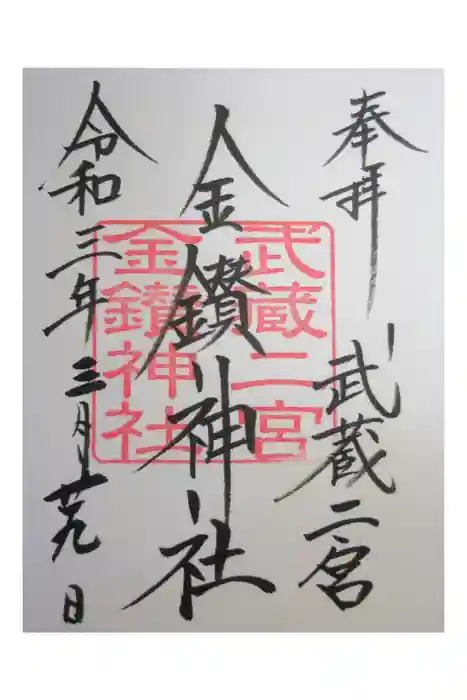 奉拝
武蔵二宮
金鑚神社
令和三年三月廿九日
武蔵二宮
金鑚神社